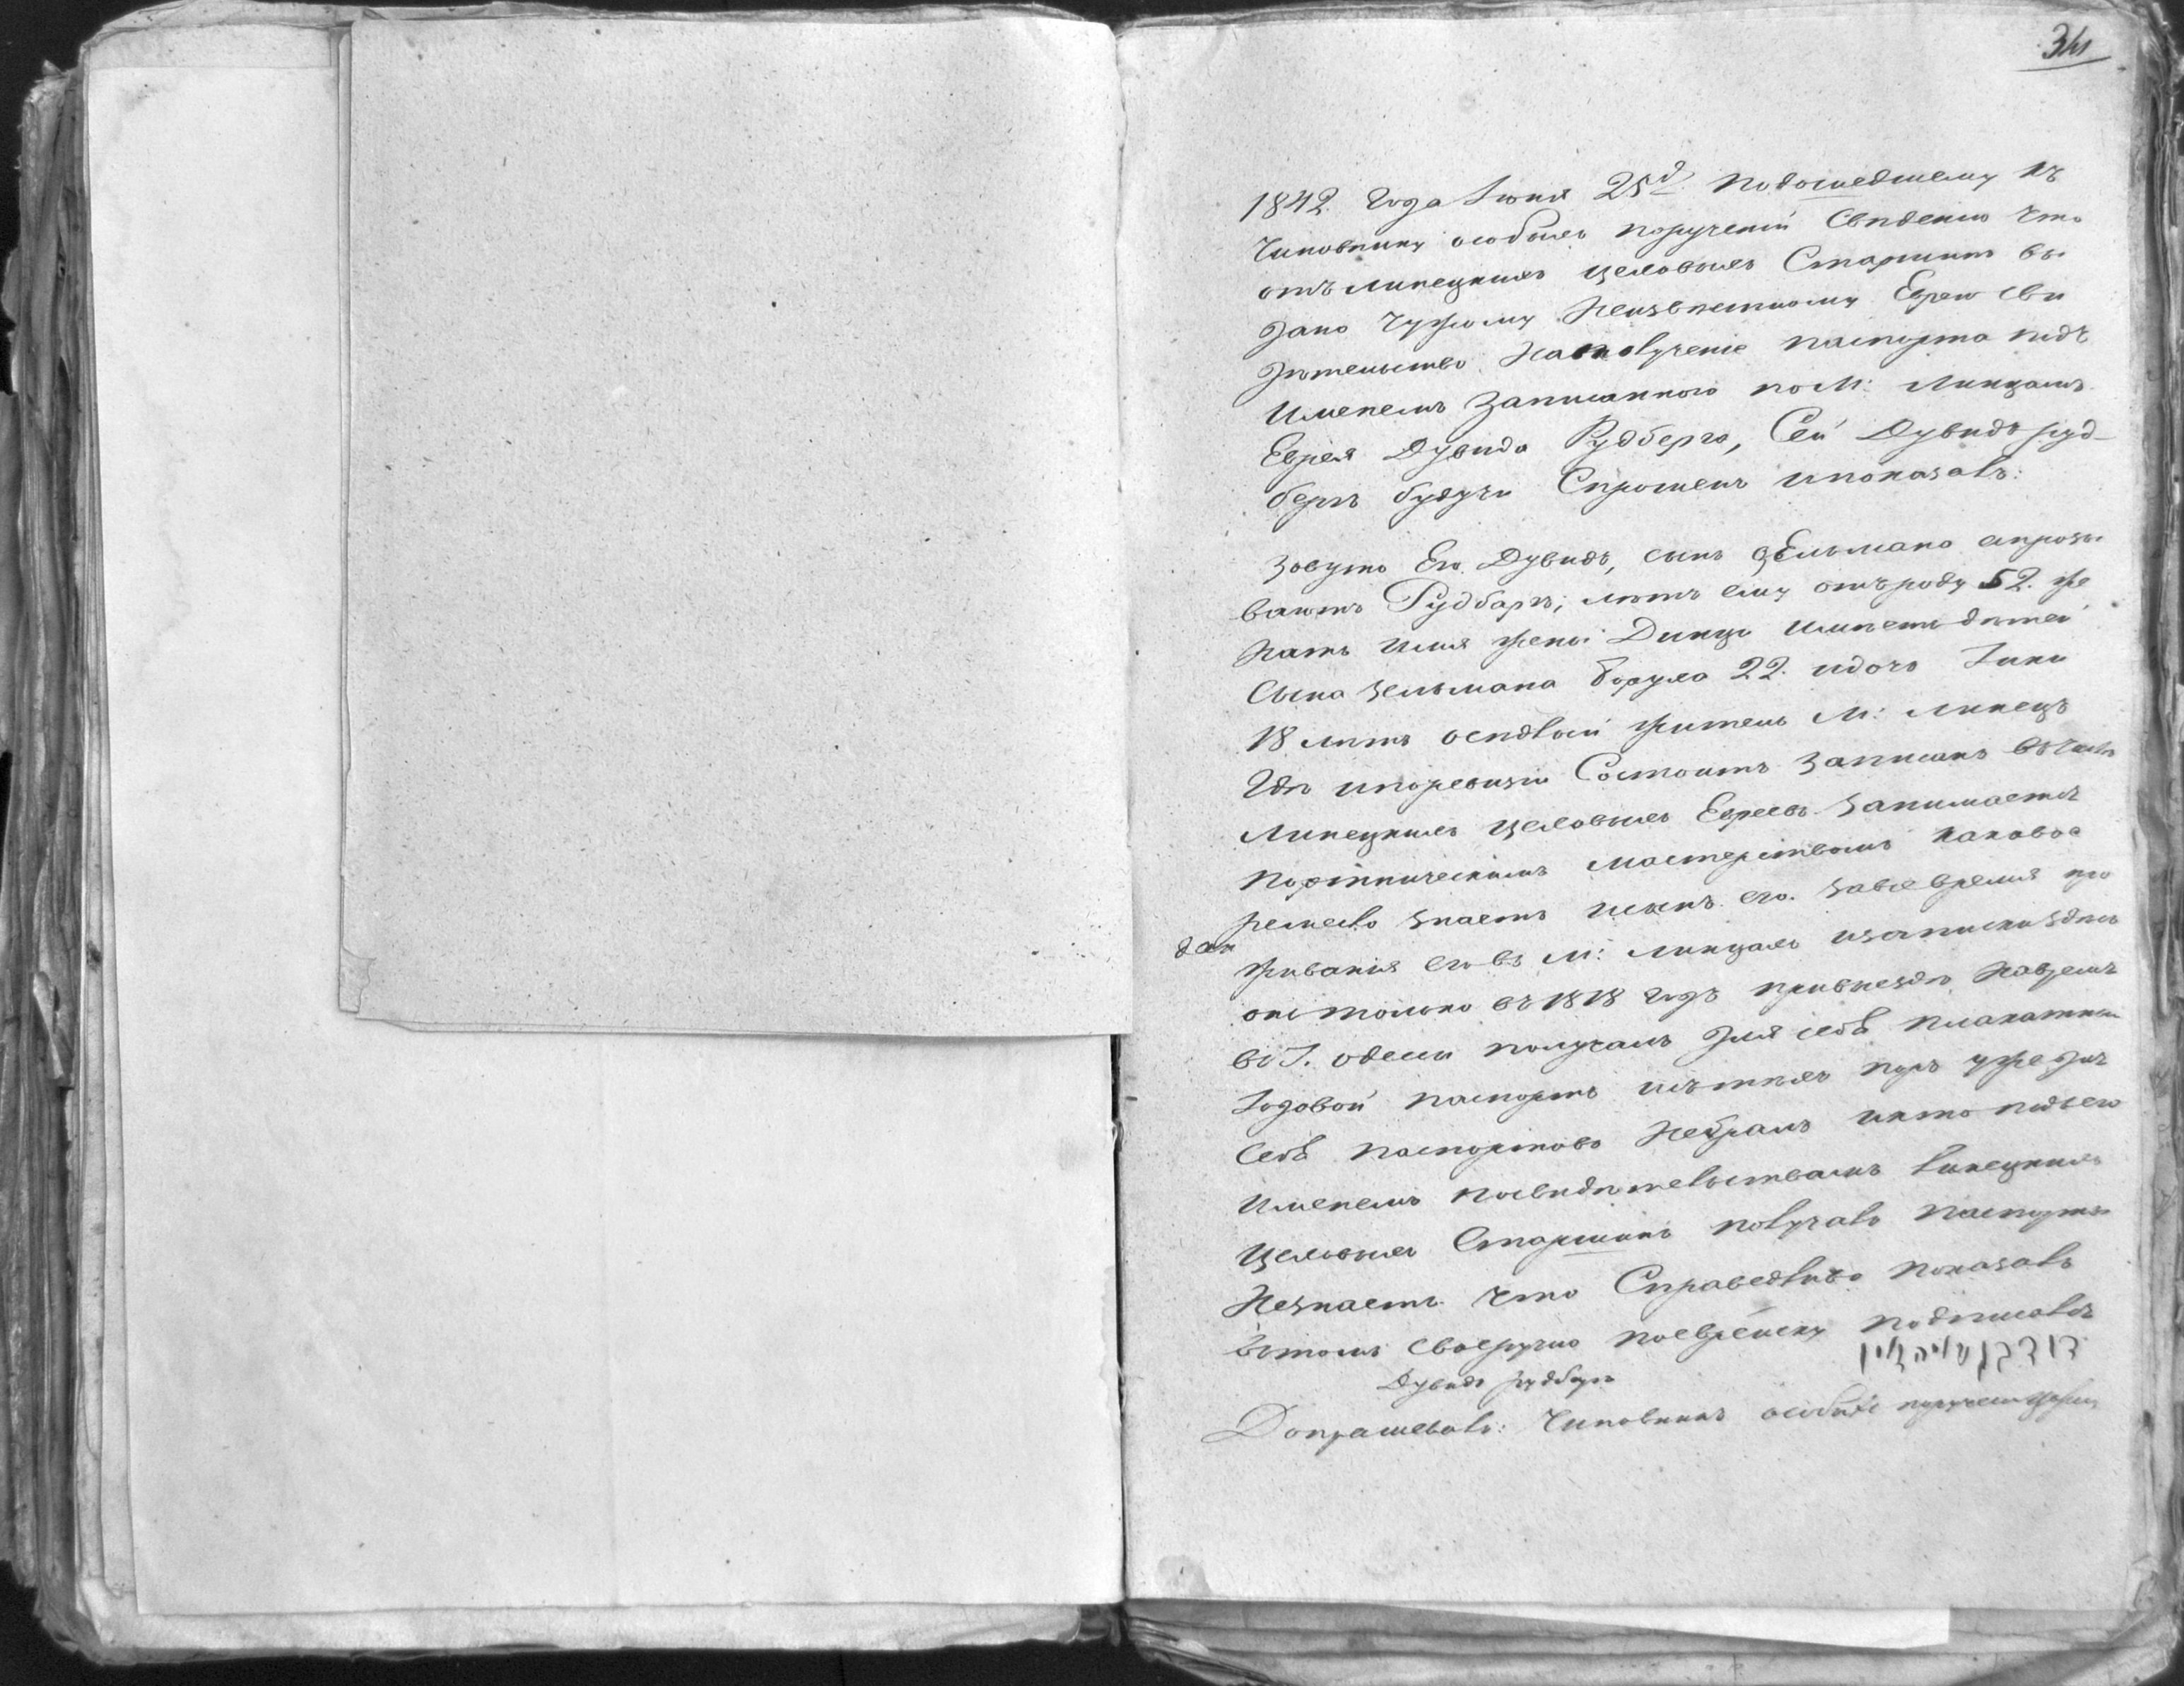 34
1842 года Іюня 25 д. Подошедшему къ
Чиновнику особыхъ порученій Сведенію что
отъ липецкихъ цеховыхъ Старшинъ вы
дано Чужому Неизвестному Еврею сви
детельство На получение паспорта подъ
Именемъ Записанного по М: Липцамъ
Еврея Дувида Рудберга, Сей Дувидъ руд-
бергъ будучи Спрошенъ и показалъ:
Зовутъ Его Дувидъ, сынъ Зельмана апрозы
ваютъ Рудбаргъ; летъ ему отъ роду 52. же
натъ имя жены Динци имеетъ детей
Сына Зельмана Борула 22. и дочь
18 летъ оседлый житель М: липецъ
Где и поревизіи Состоитъ Записанъ въ числе
Липецкихъ цеховыхъ Евреевъ Занимается
Портническимъ мастерствомъ каковое
ремесло Знаетъ и сынъ его. За все время про
живания его въ М: липцахъ
онъ только въ 1818 годъ На время
въ Г. одесси получалъ для себя плакатный
Годовой паспортъ и съ техъ поръ уже для
Себя паспортовъ Небралъ и кто подъ его
Именемъ посвидетельствамъ липецкихъ
Цеховыхъ Старшинъ получалъ паспортъ
Незнаетъ что Справедливо показалъ
Втомъ своеручно поеврейску подписался
Дувидъ рудбаргъ
Допрашевалъ: Чиновникъ особыхъ